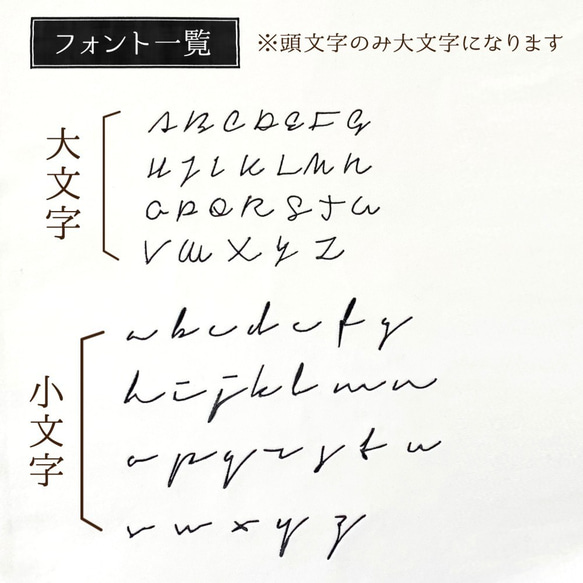 フォント一覧 ※頭文字のみ大文字になります
大文字
A B C D E F G
H I J K L M N
O P Q R S T U
V W X Y Z
小文字
a b c d e f g
h i j k l m n
o p q r s t u
v w x y z